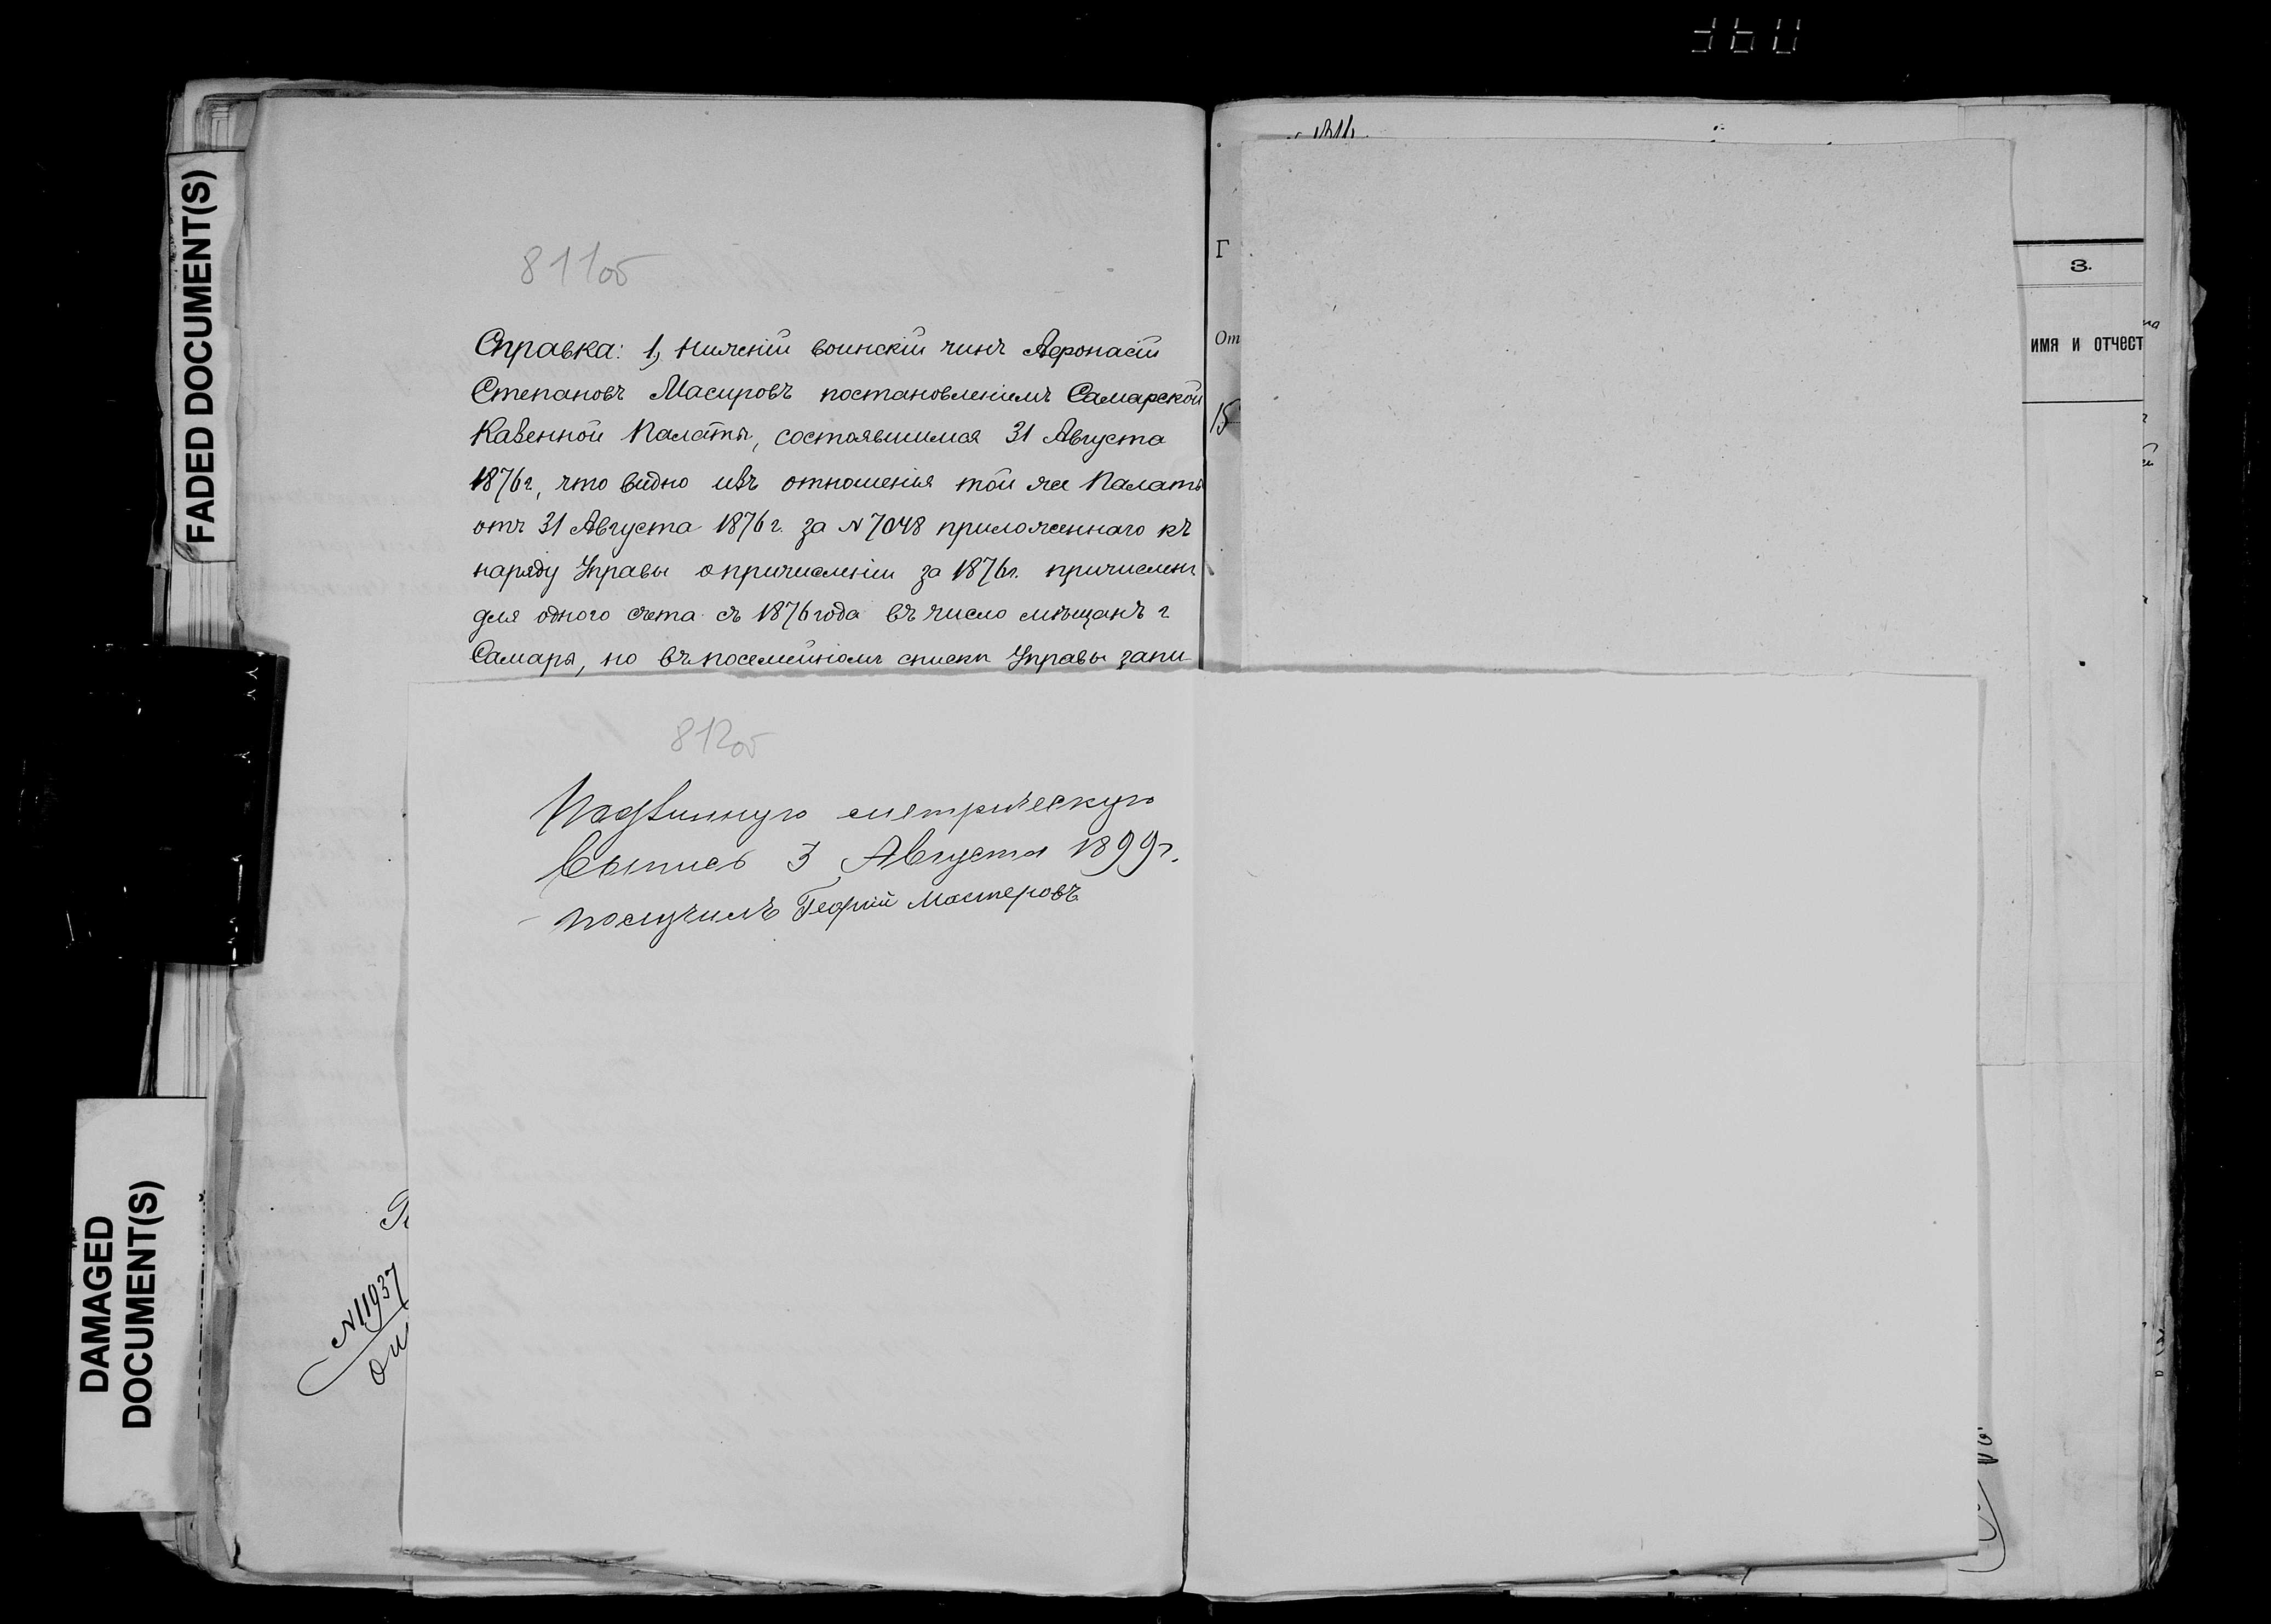 811об
Справка: 1, Нижній воинскій чинъ Афонасій
Степановъ Масировъ постановленіемъ Самарской
Казенной Палаты, состоявшимся 31 Августа
1876г, что видно изъ отношенія той же Палаты
отъ 31 Августа 1876г. за N 7048 приложеннаго къ
наряду Управы о причисленіи за 1876г. причисленъ
для одного счета съ 1876 года въ число мѣщанъ г
Самары, но въ посемейномъ списки Управы запи
812об
Подвинную метрическую
выпись 3 Августа 1899г.
получилъ Георгій Мастеровъ
N11937
Г
От
15
3.
имя и отчест
FADED DOCUMENT(S)
DAMAGED
DOCUMENT(S)